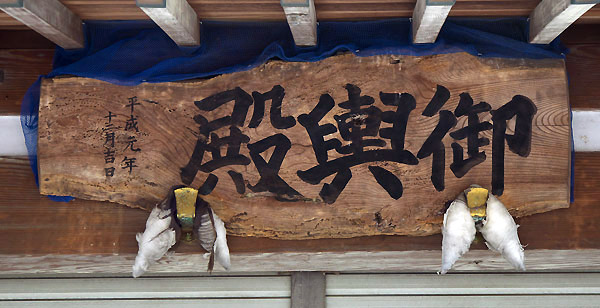 御輿殿
平成元年
十二月吉日